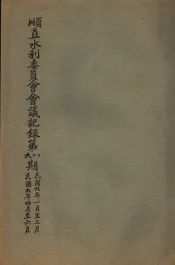 順直水利委員會會議記錄第八九期
民國九年一月至三月
民國九年四月至六月